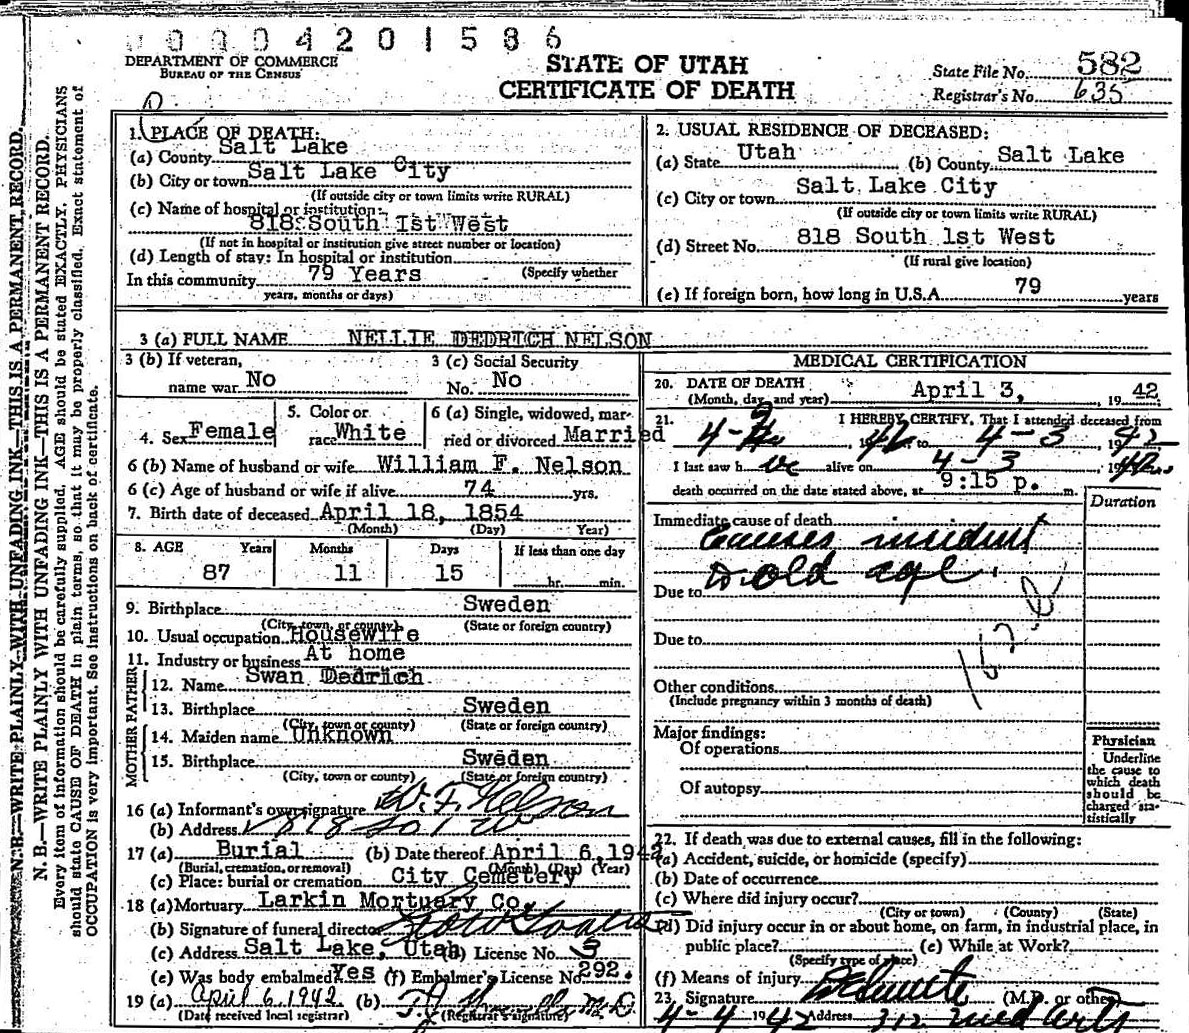 0 0 0 0 4 2 0 1 5 8 6
DEPARTMENT OF COMMERCE
BUREAU OF THE CENSUS
STATE OF UTAH
CERTIFICATE OF DEATH
State File No. 582
Registrar's No. 635
N. B.—WRITE PLAINLY WITH UNFADING INK—THIS IS A PERMANENT RECORD.
N. B.—WRITE PLAINLY WITH UNFADING INK—THIS IS A PERMANENT RECORD.
Every item of information should be carefully supplied. AGE should be stated EXACTLY. PHYSICIANS
should state CAUSE OF DEATH in plain terms, so that it may be properly classified. Exact statement of
OCCUPATION is very important. See instructions on back of certificate.
1. PLACE OF DEATH:
(a) County Salt Lake
(b) City or town Salt Lake City
(If outside city or town limits write RURAL)
(c) Name of hospital or institution:
818 South 1st West
(If not in hospital or institution give street number or location)
(d) Length of stay: In hospital or institution
(Specify whether
In this community 79 Years
years, months or days)
2. USUAL RESIDENCE OF DECEASED:
(a) State Utah (b) County Salt Lake
(c) City or town Salt Lake City
(If outside city or town limits write RURAL)
(d) Street No. 818 South 1st West
(If rural give location)
(e) If foreign born, how long in U.S.A. 79 years
3 (a) FULL NAME NELLIE DEDRICH NELSON
3 (b) If veteran,
name war No
3 (c) Social Security
No. No
4. Sex Female
5. Color or
race White
6 (a) Single, widowed, mar-
ried or divorced Married
6 (b) Name of husband or wife William F. Nelson
6 (c) Age of husband or wife if alive 74 yrs.
7. Birth date of deceased April 18, 1854
(Month) (Day) Year)
8. AGE Years Months Days If less than one day
87 11 15 hr. min.
9. Birthplace Sweden
(City, town, or county) (State or foreign country)
10. Usual occupation Housewife
11. Industry or business At home
FATHER
12. Name Swan Dedrich
13. Birthplace Sweden
(City, town or county) (State or foreign country)
MOTHER
14. Maiden name Unknown
15. Birthplace Sweden
(City, town or county) (State or foreign country)
16 (a) Informant's own signature W. F. Nelson
(b) Address 818 So 1 W
17 (a) Burial (b) Date thereof April 6, 1942
(Burial, cremation, or removal) (Month) (Day) (Year)
(c) Place: burial or cremation City Cemetery
18 (a) Mortuary Larkin Mortuary Co.
(b) Signature of funeral director
(c) Address Salt Lake, Utah (d) License No. 3
(e) Was body embalmed Yes (f) Embalmer's License No. 292.
19 (a) April 6, 1942 (b) M.D.
(Date received local registrar) (Registrar's signature)
MEDICAL CERTIFICATION
20. DATE OF DEATH
(Month, day and year) April 3, 1942
21. I HEREBY CERTIFY, That I attended deceased from
4- 1942 to 4-3 1942
I last saw her alive on 4-3 1942
death occurred on the date stated above, at 9:15 p. m.
Duration
Immediate cause of death
Causes incident
to old age.
Due to
Due to
Other conditions
(Include pregnancy within 3 months of death)
Major findings:
Of operations
Of autopsy
Physician
Underline
the cause to
which death
should be
charged sta-
tistically
22. If death was due to external causes, fill in the following:
(a) Accident, suicide, or homicide (specify)
(b) Date of occurrence
(c) Where did injury occur?
(City or town) (County) (State)
(d) Did injury occur in or about home, on farm, in industrial place, in
public place? (e) While at Work?
(Specify type of place)
(f) Means of injury
23. Signature (M.D. or other)
4-4 1942 Address 312 Med Arts